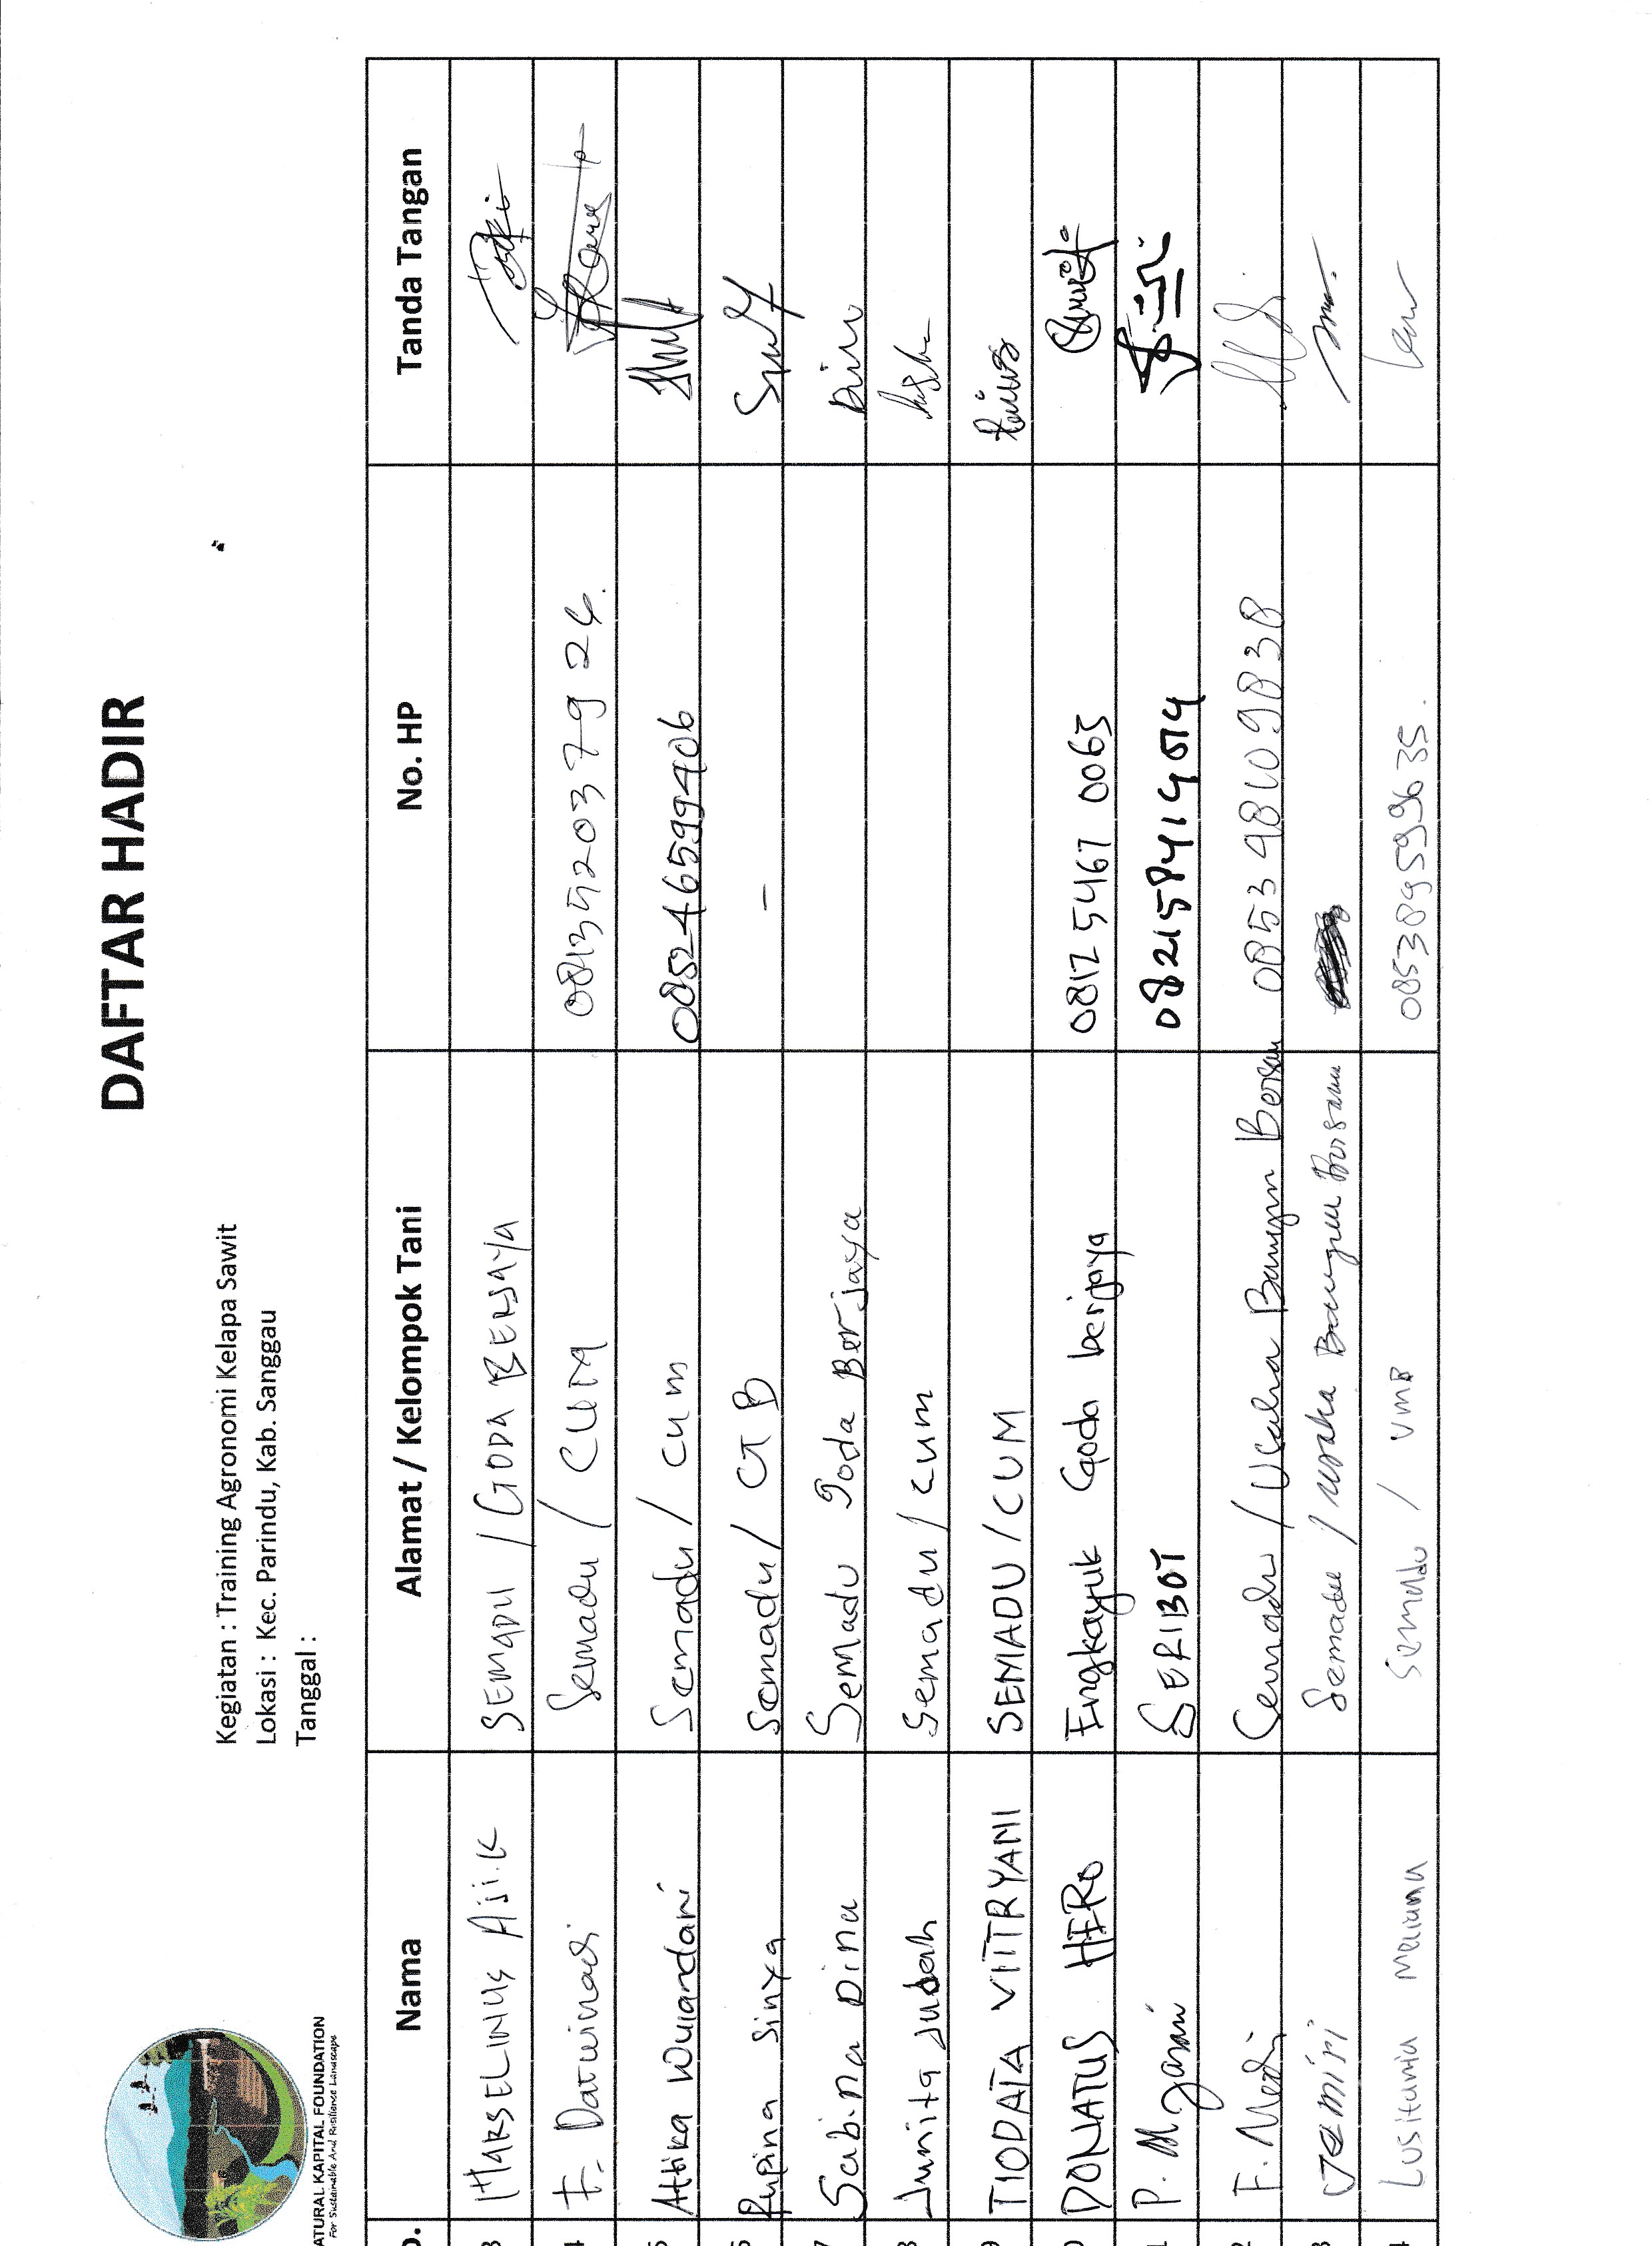 DAFTAR HADIR
ATURAL KAPITAL FOUNDATION
For Sustainable And Resilience Landscape
Kegiatan : Training Agronomi Kelapa Sawit
Lokasi : Kec. Parindu, Kab. Sanggau
Tanggal :
Nama Alamat / Kelompok Tani No. HP Tanda Tangan
3 MARSELINUS Ajik SEMADU / GODA BERJAYA
4 F. Darwinadi Semadu / CUM 081352037924.
5 Attika Wulandari Semadu / cum 08246599406
6 Rupina Sinya Semadu / GB -
7 Sabina Dina Semadu Goda Berjaya
8 Junita Judah Semadu / cum
9 TIODATA VIITRYAMI SEMADU / CUM
0 DONATUS HERO Engkayuk Goda berjaya 0812 5467 0063
1 P. M. Zamri SERIBOT
2 F. Medi Semadu / Usaha Bangun Bersam 085348109838
3 Jemiri Semadu / usaha Bangun Bersama
4 Lusitania Meriana Semadu / UMB 085389599635.